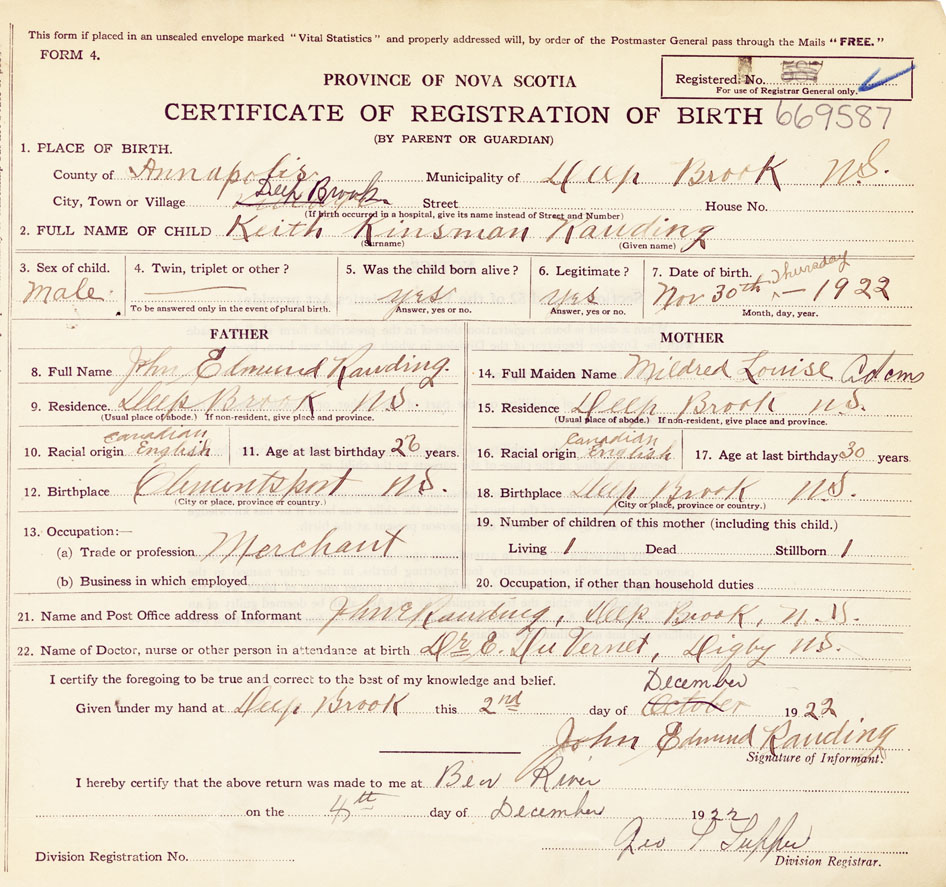 This form if placed in an unsealed envelope marked "Vital Statistics" and properly addressed will, by order of the Postmaster General pass through the Mails "FREE."
FORM 4.
PROVINCE OF NOVA SCOTIA
Registered. No.
For use of Registrar General only.
CERTIFICATE OF REGISTRATION OF BIRTH 669587
(BY PARENT OR GUARDIAN)
1. PLACE OF BIRTH.
County of Annapolis Municipality of Deep Brook N.S.
City, Town or Village Deep Brook Street House No.
(If birth occurred in a hospital, give its name instead of Street and Number)
2. FULL NAME OF CHILD Keith Kinsman Rawding
(Surname) (Given name)
3. Sex of child. 4. Twin, triplet or other? 5. Was the child born alive? 6. Legitimate? 7. Date of birth.
Male yes yes Nov 30th Thursday — 1922
To be answered only in the event of plural birth. Answer, yes or no. Answer, yes or no. Month, day, year.
FATHER MOTHER
8. Full Name John Edmund Rawding. 14. Full Maiden Name Mildred Louise Adams
9. Residence. Deep Brook N.S. 15. Residence Deep Brook N.S.
(Usual place of abode.) If non-resident, give place and province. (Usual place of abode.) If non-resident, give place and province.
10. Racial origin Canadian English 11. Age at last birthday 26 years. 16. Racial origin Canadian English 17. Age at last birthday 30 years.
12. Birthplace Clementsport N.S. 18. Birthplace Deep Brook N.S.
(City or place, province or country.) (City or place, province or country.)
13. Occupation:— 19. Number of children of this mother (including this child.)
(a) Trade or profession Merchant Living 1 Dead Stillborn 1
(b) Business in which employed 20. Occupation, if other than household duties
21. Name and Post Office address of Informant John E Rawding, Deep Brook, N.S.
22. Name of Doctor, nurse or other person in attendance at birth Dr E. Du Vernet, Digby N.S.
I certify the foregoing to be true and correct to the best of my knowledge and belief.
December
Given under my hand at Deep Brook this 2nd day of October 1922
John Edmund Rawding
Signature of Informant.
I hereby certify that the above return was made to me at Bear River
on the 4th day of December 1922
Geo
Division Registration No. Division Registrar.